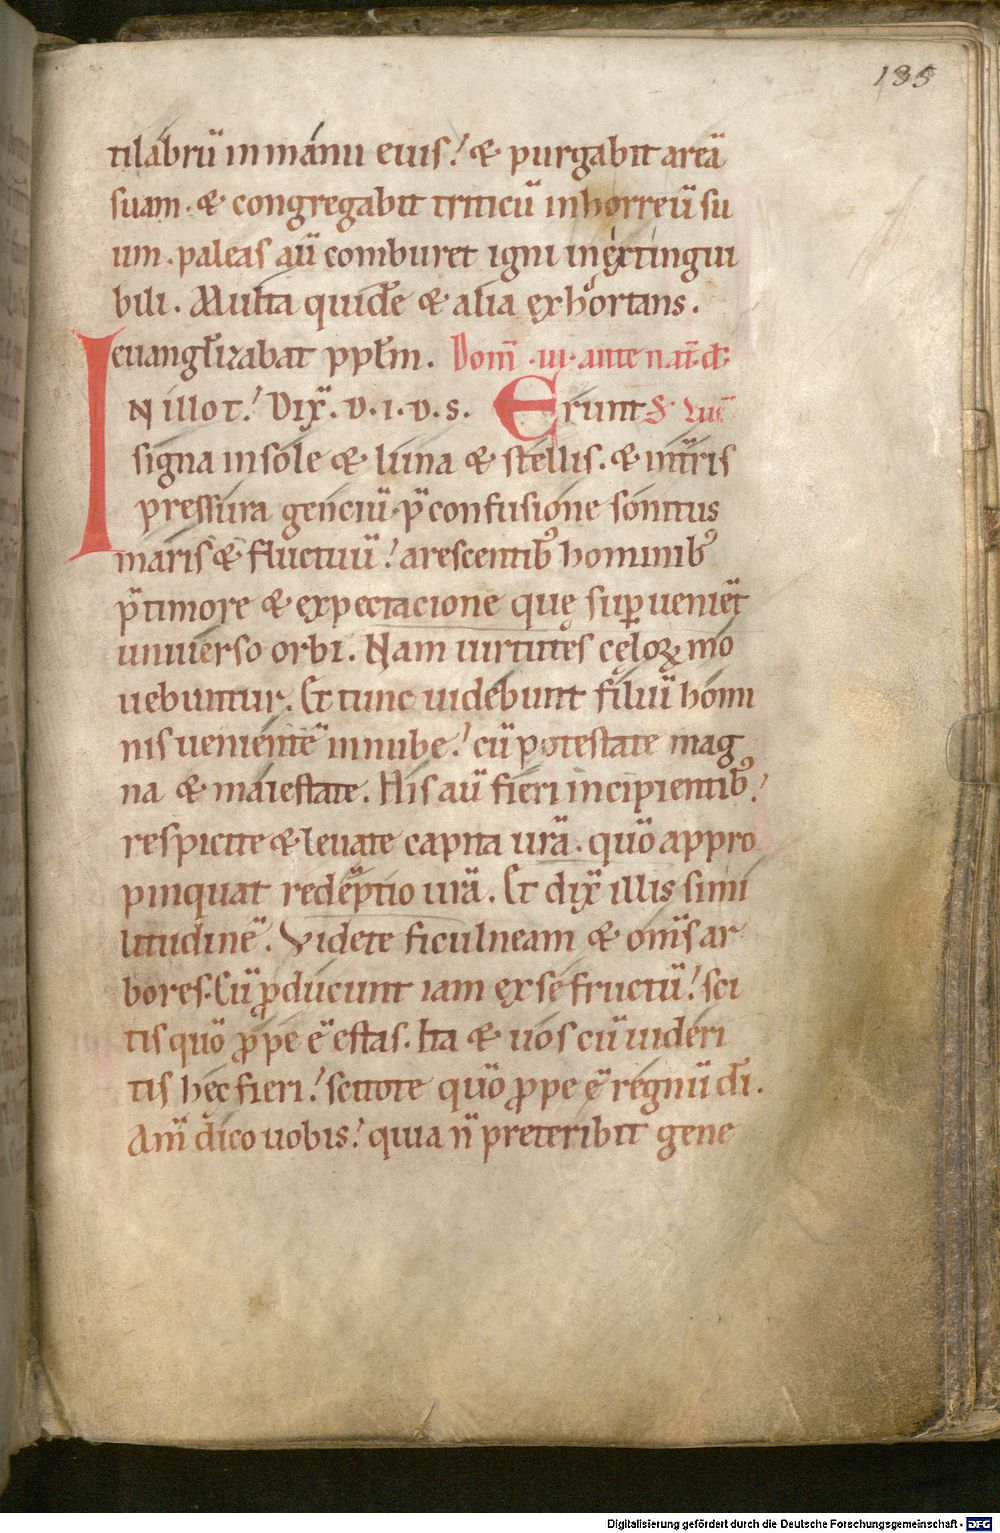 135
tilabrū in manu eius! & purgabit areā
suam. & congregabit triticū in horreū su
um. paleas aū comburet igni inextingui
bili. Multa quidē & alia exhortans.
euangl̄izabat ppl̄m. Dom̄ .iii. ante nat̄. d̄.
IN illo t̄.! Dix̄. d. i. d. s. Erunt S. Luc̄
signa in sole & luna & stellis. & in t̄ris
pressura genciū. p̄ confusione sonitus
maris & fluctuū! arescentibꝰ hominibꝰ
p̄ timore & expectacione quę suꝑuenient̄
uniuerso orbi. Nam uirtutes cęloꝝ mo
uebuntur. Et tunc uidebunt filiū homi
nis uenientē in nube! cū potestate mag
na & maiestate. His aū fieri incipientibꝰ!
respicite & leuate capita ur̄a. quō appro
pinquat redēptio ur̄a. Et dix̄ illis simi
litudinē. Videte ficulneam & om̄s ar
bores. Cū ꝓducunt iam ex se fructū! sci
tis quō ꝓpe ē estas. Ita & uos cū uideri
tis hęc fieri! scitote quō ꝓpe ē regnū dī.
Am̄ dico uobis! quia n̄ preteribit gene
Digitalisierung gefördert durch die Deutsche Forschungsgemeinschaft - DFG